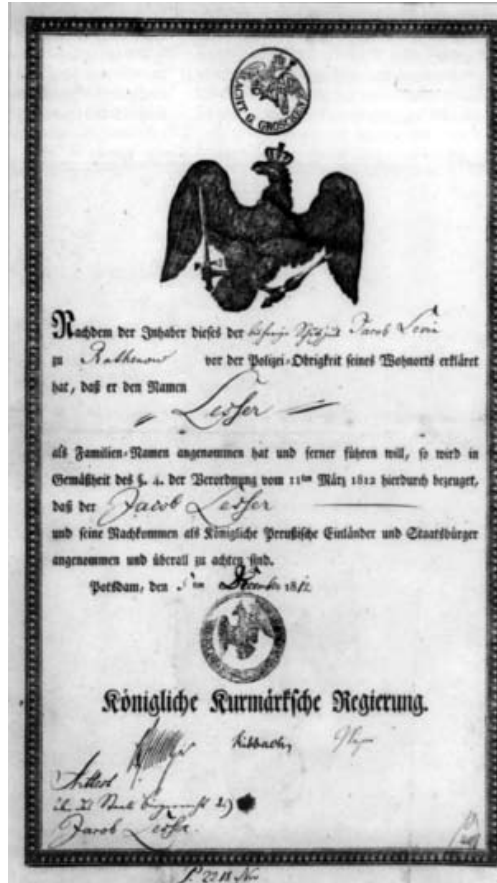 ACHT G. GROSCHEN
Nachdem der Inhaber dieses der bisherige Schutzjude Jacob Levin
zu Rathenow vor der Polizei-Obrigkeit seines Wohnorts erkläret
hat, daß er den Namen
Lesser
als Familien-Namen angenommen hat und ferner führen will, so wird in
Gemäßheit des §. 4. der Verordnung vom 11ten März 1812 hierdurch bezeuget,
daß der Jacob Lesser
und seine Nachkommen als Königliche Preußische Einländer und Staatsbürger
angenommen und überall zu achten sind.
Potsdam, den 5ten December 1812
Königliche Kurmärksche Regierung.
Attest
Jacob Lesser.